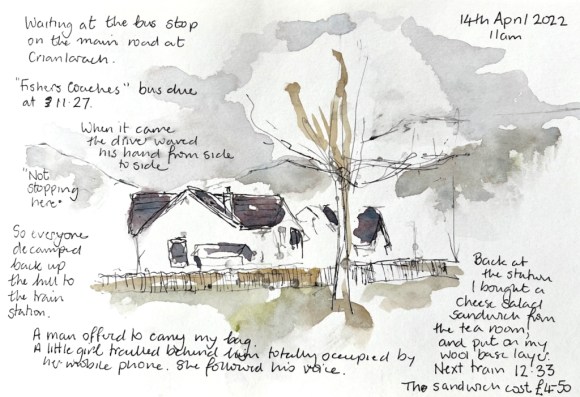 Waiting at the bus stop
on the main road at
Crianlarach.
14th April 2022
11am
"Fishers Coaches" bus due
at 11.27.
When it came
the driver waved
his hand from side
to side
"Not
stopping
here"
So everyone
decamped
back up
the hill to
the train
station.
A man offerd to carry my bag.
A little girl trailed behind him totally occupied by
her mobile phone. She followed his voice.
Back at
the station
I bought a
cheese salad
sandwich from
the tea room,
and put on my
wool base layer.
Next train 12:33
The sandwich cost £4.50